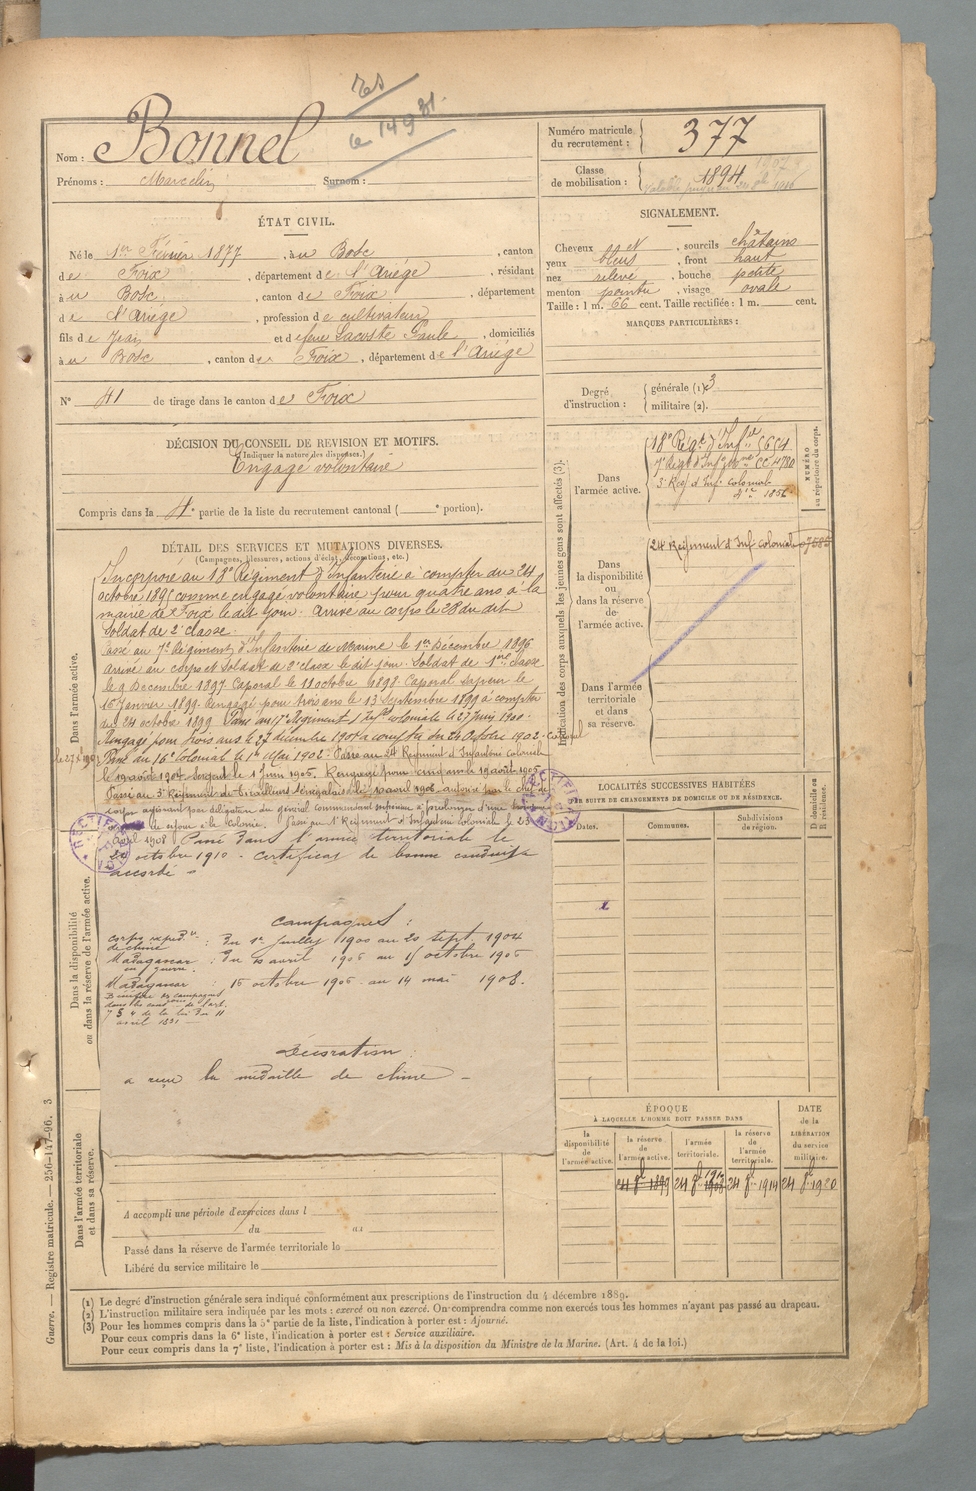 Nom : Bonnel
Prénoms : Marcelin Surnom :
Numéro matricule du recrutement : 377
Classe de mobilisation : 1894
ÉTAT CIVIL.
Né le 1er Février 1877, à u Bosc, canton
de Foix, département de l'Ariége, résidant
à u Bosc, canton de Foix, département
de l'Ariége, profession de cultivateur
fils de Jean et de feue Lacoste Paule, domiciliés
à u Bosc, canton de Foix, département de l'Ariége
N° 41 de tirage dans le canton de Foix
SIGNALEMENT.
Cheveux et, sourcils châtains
yeux bleus, front haut
nez relevé, bouche petite
menton pointu, visage ovale
Taille : 1 m. 66 cent. Taille rectifiée : 1 m. cent.
MARQUES PARTICULIÈRES :
Degré d'instruction : générale (1). 3
militaire (2).
DÉCISION DU CONSEIL DE REVISION ET MOTIFS.
(Indiquer la nature des dispenses.)
Engagé volontaire
Compris dans la 4e partie de la liste du recrutement cantonal ( e portion).
DÉTAIL DES SERVICES ET MUTATIONS DIVERSES.
(Campagnes, blessures, actions d'éclat, décorations, etc.)
Dans l'armée active.
Incorporé au 18e Régiment d'Infanterie à compter du 24
octobre 1895 comme engagé volontaire pour quatre ans à la
mairie de Foix le dit jour. Arrivé au corps le 28 du dit
Soldat de 2e classe.
Passé au 7e Régiment d'Infanterie de Marine le 1er Décembre 1896
Arrivé au corps et Soldat de 2e classe le dit jour. Soldat de 1ere classe
le 9 Décembre 1897. Caporal le 11 octobre 1898. Caporal sapeur le
16 Janvier 1899. Rengagé pour trois ans le 13 Septembre 1899 à compter
du 24 octobre 1899. Passé au 17e Régiment d'Infie coloniale le 27 Juin 1900.
Rengagé pour trois ans le 27 décembre 1901 à compter du 24 Octobre 1902.
Passé au 16e Colonial le 1er Mai 1902. Passé au 24 Régiment d'Infanterie coloniale
le 19 août 1904. Sergent le 1 Juin 1905. Rengagé pour cinq ans le 19 août 1905
Passé au 3e Régiment de Tirailleurs Sénégalais le 10 avril 1906. autorisé par le chef de
corps agissant par délégation du général commandant supérieur à prolonger d'une
de séjour à la Colonie. Passé au 1er Régiment d'Infanterie coloniale le 23
Avril 1908 Passé dans l'armée territoriale le
24 octobre 1910 - Certificat de bonne conduite
accordé =
Campagnes :
corps expédre de Chine : Du 1er Juillet 1900 au 20 Sept. 1904
Madagascar en guerre : Du 10 avril 1906 au 15 octobre 1906
Madagascar : 16 octobre 1906 au 14 mai 1908.
Bénéfice de campagne
dans les conditions de l'art.
7 § 4 de la loi du 11
avril 1831
Décoration :
a reçu la médaille de Chine -
Dans la disponibilité ou dans la réserve de l'armée active.
Dans l'armée territoriale et dans sa réserve.
A accompli une période d'exercices dans l
du au
Passé dans la réserve de l'armée territoriale le
Libéré du service militaire le
Indication des corps auxquels les jeunes gens sont affectés (3).
NUMÉRO au répertoire du corps.
Dans l'armée active.
18e Régt d'Infie 5654
7e Régt d'Infie Mne CC 4780
3e Reg d'Inf. colonial
1856
Dans la disponibilité ou dans la réserve de l'armée active.
24 Régiment d'Inf coloniale
Dans l'armée territoriale et dans sa réserve.
LOCALITÉS SUCCESSIVES HABITÉES
PAR SUITE DE CHANGEMENTS DE DOMICILE OU DE RÉSIDENCE.
Dates. Communes. Subdivisions de région. D domicile R résidence.
ÉPOQUE
À LAQUELLE L'HOMME DOIT PASSER DANS
la disponibilité de l'armée active. la réserve de l'armée active. l'armée territoriale. la réserve de l'armée territoriale. DATE de la LIBÉRATION du service militaire.
24 8bre 1899 24 8bre 1910 24 8bre 1914 24 8bre 1920
(1) Le degré d'instruction générale sera indiqué conformément aux prescriptions de l'instruction du 4 décembre 1889.
(2) L'instruction militaire sera indiquée par les mots : exercé ou non exercé. On comprendra comme non exercés tous les hommes n'ayant pas passé au drapeau.
(3) Pour les hommes compris dans la 5e partie de la liste, l'indication à porter est : Ajourné.
Pour ceux compris dans la 6e liste, l'indication à porter est : Service auxiliaire.
Pour ceux compris dans la 7e liste, l'indication à porter est : Mis à la disposition du Ministre de la Marine. (Art. 4 de la loi.)
Guerre. — Registre matricule. — 256-147-96. 3